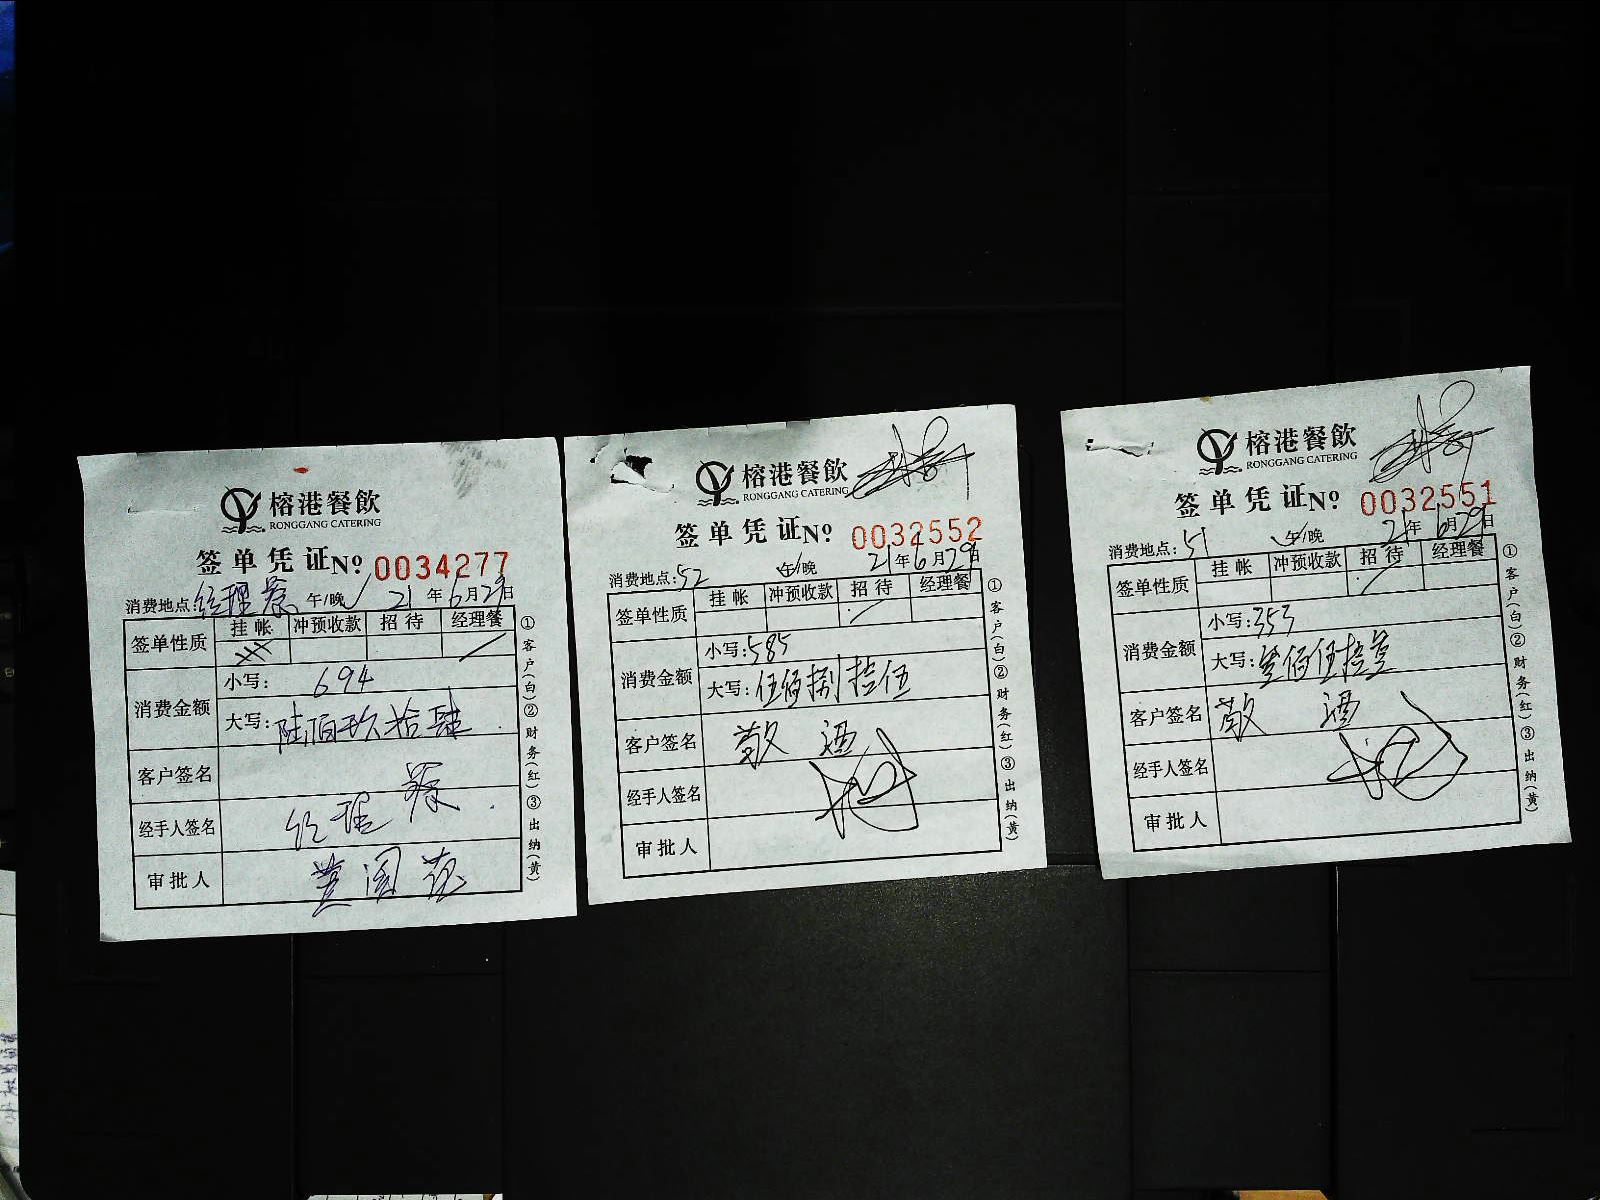 榕港餐飲
RONGGANG CATERING
签单凭证 No 0034277
消费地点:经理蔡 午/晚 21年6月29日
签单性质 挂帐 冲预收款 招待 经理餐
消费金额
小写: 694
大写: 陆佰玖拾肆
客户签名
经手人签名 经理 蔡
审批人
①客户(白)②财务(红)③出纳(黄)
榕港餐飲
RONGGANG CATERING
签单凭证 No 0032552
消费地点:52 午/晚 21年6月29日
签单性质 挂帐 冲预收款 招待 经理餐
消费金额
小写:585
大写:伍佰捌拾伍
客户签名 敬 酒
经手人签名
审批人
①客户(白)②财务(红)③出纳(黄)
榕港餐飲
RONGGANG CATERING
签单凭证 No 0032551
消费地点:51 午/晚 21年6月29日
签单性质 挂帐 冲预收款 招待 经理餐
消费金额
小写:353
大写:叁佰伍拾叁
客户签名 敬 酒
经手人签名
审批人
①客户(白)②财务(红)③出纳(黄)